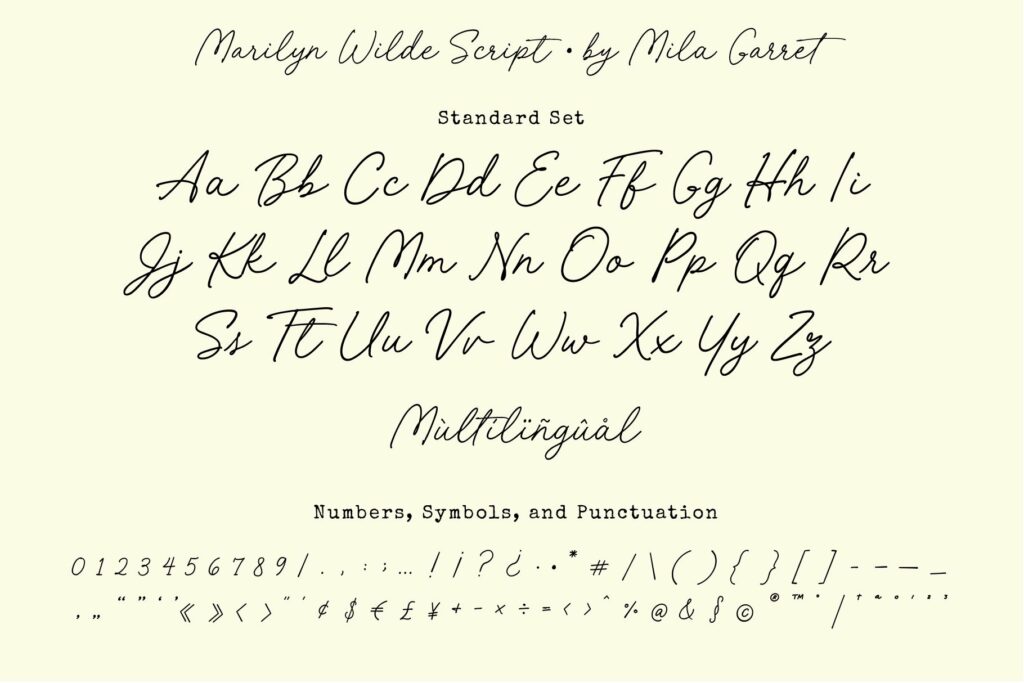 Marilyn Wilde Script • by Mila Garret
Standard Set
Aa Bb Cc Dd Ee Ff Gg Hh Ii
Jj Kk Ll Mm Nn Oo Pp Qq Rr
Ss Tt Uu Vv Ww Xx Yy Zz
Mùltílïñgûål
Numbers, Symbols, and Punctuation
0 1 2 3 4 5 6 7 8 9 / . , : ; … ! ¡ ? ¿ · • * # / \ ( ) { } [ ] - – — _
‚ „ “ ” ‘ ’ « » ‹ › " ' ¢ $ € £ ¥ + − × ÷ = < > ^ % @ & § © ® ™ ° |